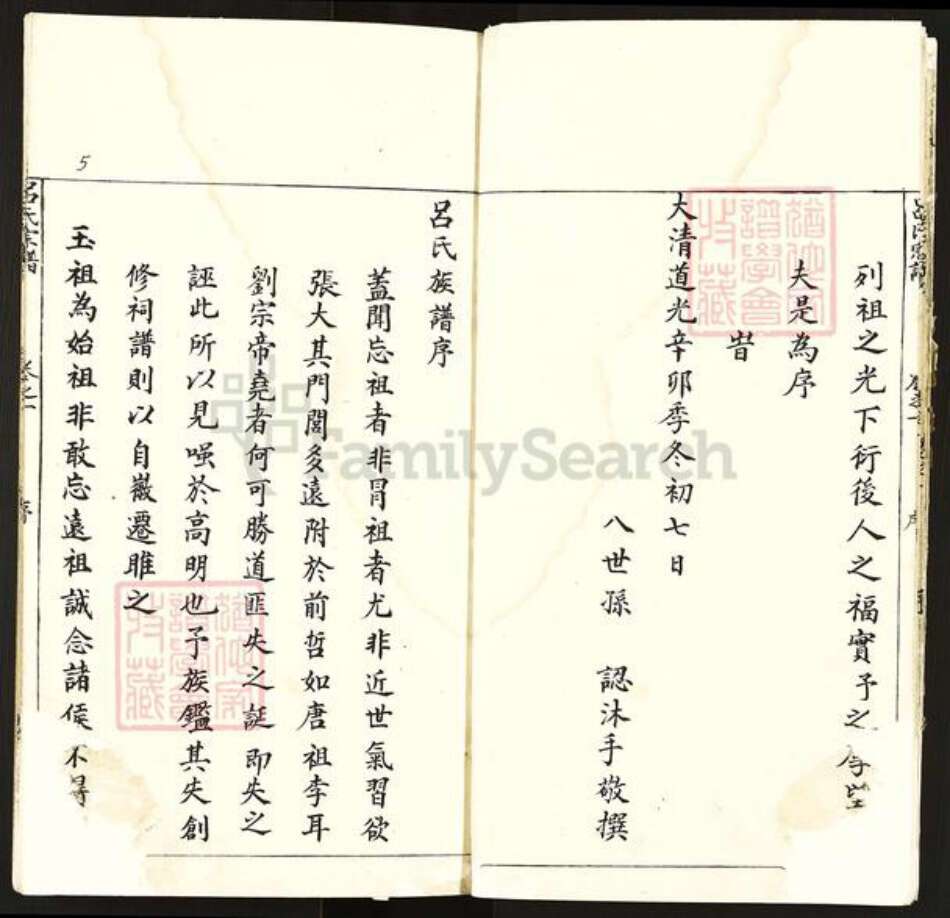 列祖之光下衍後人之福實予之厚望
夫是為序
旹
大清道光辛卯季冬初七日
八世孫 認沐手敬撰
呂氏族譜序
蓋聞忘祖者非冒祖者尤非近世氣習欲
張大其門閭多遠附於前哲如唐祖李耳
劉宗帝堯者何可勝道匪失之誕即失之
誣此所以見嗤於高明也予族鑑其失創
修祠譜則以自巖遷睢之
玉祖為始祖非敢忘遠祖誠念諸侯不得
呂氏族譜 卷之一 序
5
FamilySearch